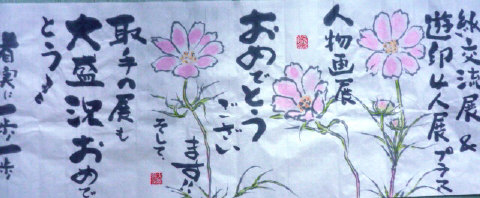 絵交流展&
遊印4人展プラス
人物画展
おめでとう
ござい
ます!!
そして、
取手の展も
大盛況おめで
とう!!
着実に一歩一歩